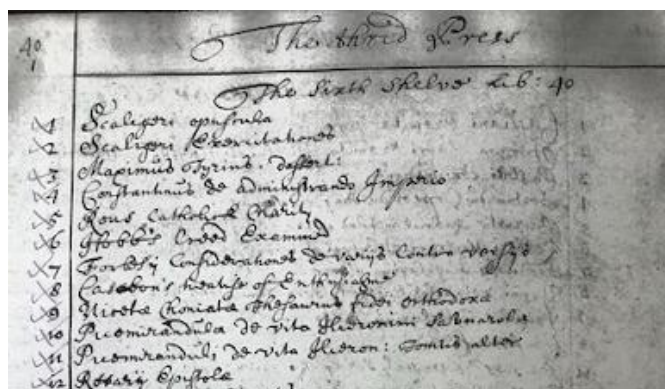 40
1
The thrid Press
The Sixth Shelve Lib: 40
1 Scaligeri opuscula
2 Scaligeri Exercitationes
3 Maximus Tyrius. dissert:
4 Constantinus de administrando Imperio
5 Rous Catholick Charity
6 Hobb's Creed Examined
7 Forbesij Considerationes de varijs Controversys
8 Casabon's treatise of Enthusiasme
9 Niceta Choniata Thesaurus fidei orthodoxa
10 Picemirandula de vita Hieronimi Savanarola
11 Picemiranduli de vita Hieron: Tomus alter
12 Rotarij Epistola